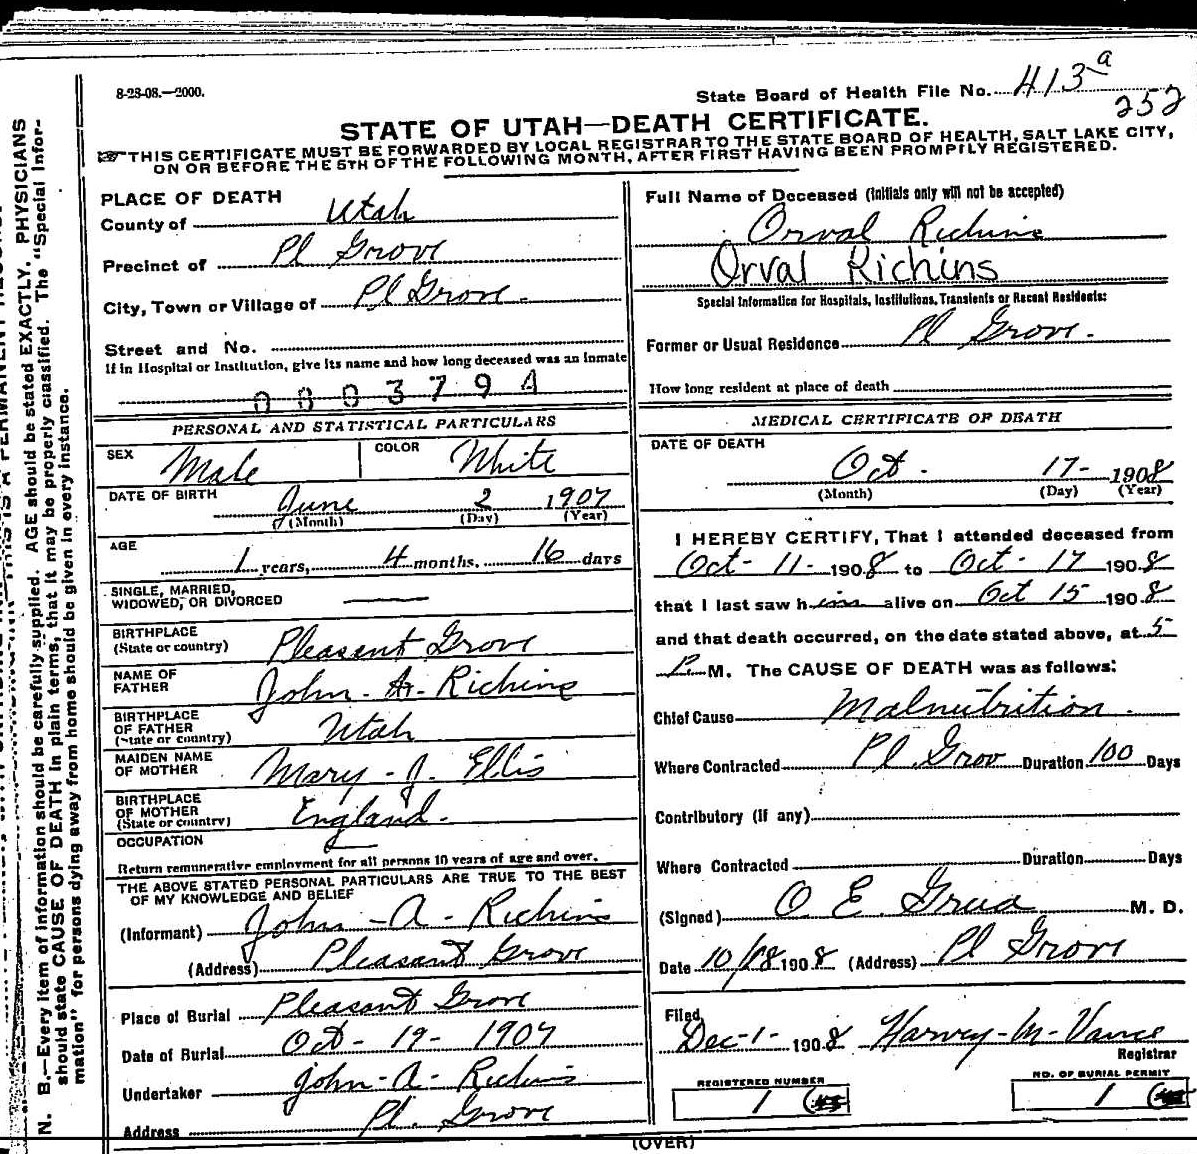 8-28-08.—2000.
State Board of Health File No. 413a
252
STATE OF UTAH—DEATH CERTIFICATE.
THIS CERTIFICATE MUST BE FORWARDED BY LOCAL REGISTRAR TO THE STATE BOARD OF HEALTH, SALT LAKE CITY,
ON OR BEFORE THE 5TH OF THE FOLLOWING MONTH, AFTER FIRST HAVING BEEN PROMPTLY REGISTERED.
PLACE OF DEATH
County of Utah
Precinct of Pl Grove
City, Town or Village of Pl Grove.
Street and No.
If in Hospital or Institution, give its name and how long deceased was an inmate
0003794
PERSONAL AND STATISTICAL PARTICULARS
SEX Male COLOR White
DATE OF BIRTH June 2 1907
(Month) (Day) (Year)
AGE 1 years, 4 months, 16 days
SINGLE, MARRIED,
WIDOWED, OR DIVORCED —
BIRTHPLACE
(State or country) Pleasant Grove
NAME OF
FATHER John A. Richins
BIRTHPLACE
OF FATHER
(State or country) Utah
MAIDEN NAME
OF MOTHER Mary J. Ellis
BIRTHPLACE
OF MOTHER
(State or country) England.
OCCUPATION
Return remunerative employment for all persons 10 years of age and over.
THE ABOVE STATED PERSONAL PARTICULARS ARE TRUE TO THE BEST
OF MY KNOWLEDGE AND BELIEF
(Informant) John A Richins
(Address) Pleasant Grove
Place of Burial Pleasant Grove
Date of Burial Oct 19 1907
Undertaker John A Richins
Address Pl. Grove
Full Name of Deceased (initials only will not be accepted)
Orval Richins
Orval Richins
Special Information for Hospitals, Institutions, Transients or Recent Residents:
Former or Usual Residence Pl Grove.
How long resident at place of death
MEDICAL CERTIFICATE OF DEATH
DATE OF DEATH
Oct. 17- 1908
(Month) (Day) (Year)
I HEREBY CERTIFY, That I attended deceased from
Oct-11- 1908 to Oct-17 1908
that I last saw him alive on Oct 15 1908
and that death occurred, on the date stated above, at 5
P. M. The CAUSE OF DEATH was as follows:
Chief Cause Malnutrition.
Where Contracted Pl. Grov Duration 100 Days
Contributory (if any)
Where Contracted Duration Days
(Signed) O. E. Grua M. D.
Date 10/18 1908 (Address) Pl Grove
Filed
Dec-1- 1908 Harvey M Vance
Registrar
REGISTERED NUMBER
1
NO. OF BURIAL PERMIT
1
(OVER)
N. B.—Every item of information should be carefully supplied. AGE should be stated EXACTLY. PHYSICIANS
should state CAUSE OF DEATH in plain terms, that it may be properly classified. The "Special Infor-
mation" for persons dying away from home should be given in every instance.